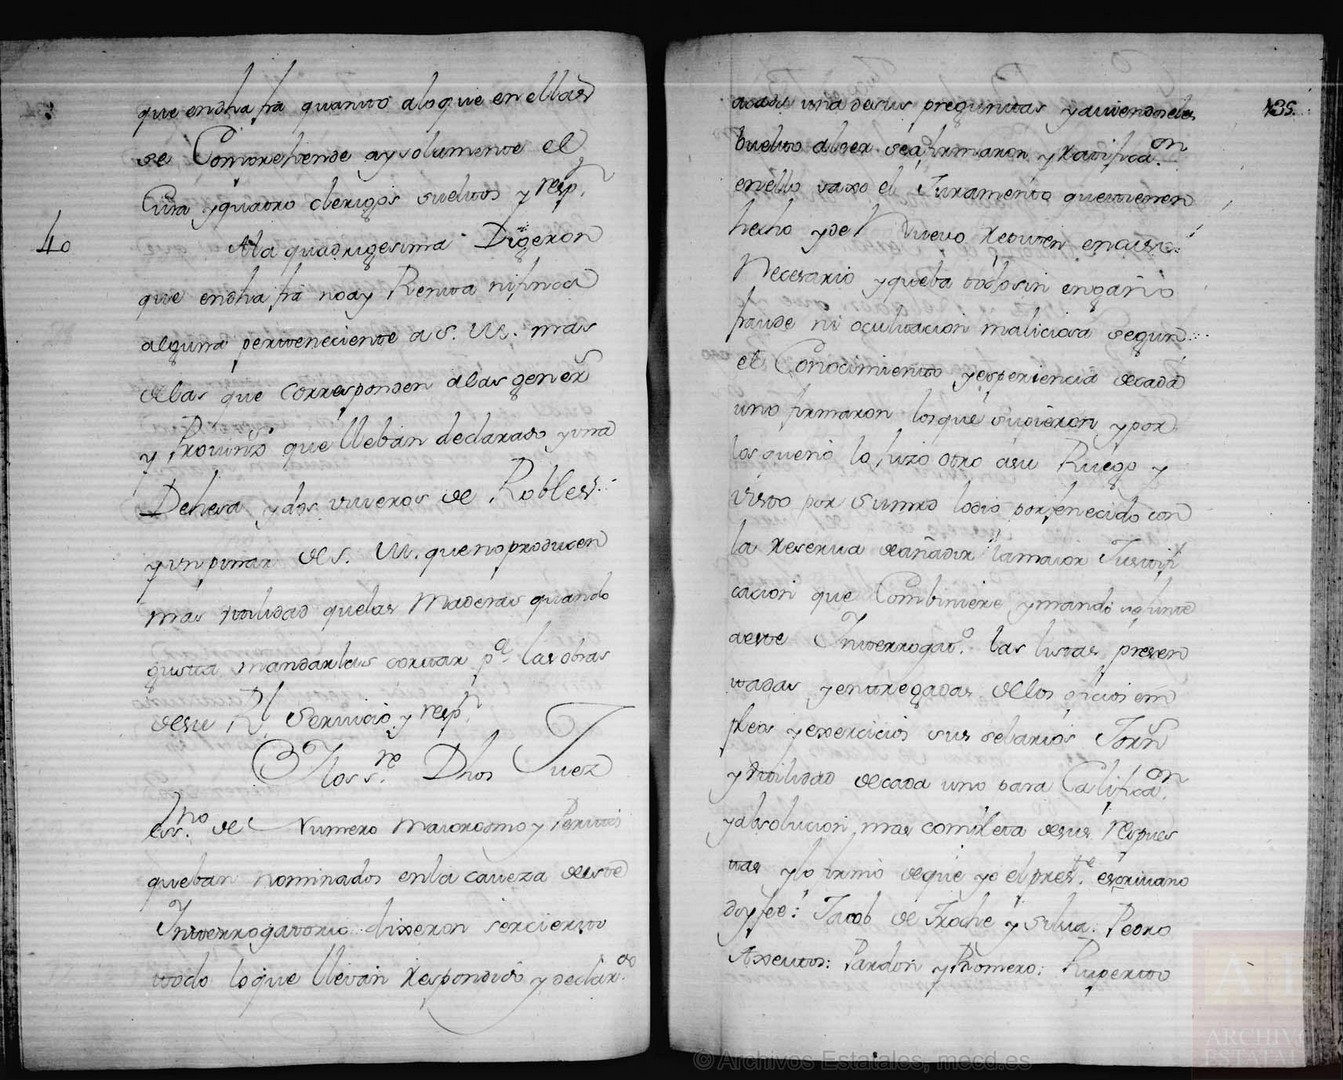 que en dha fra quanto alo que en ellas
se Comprehende ay solamente el
Cura y quatro clerigos sueltos y resp.n
40
Ala quadrigesima Digeron
que en dha fra no ay Renta ni finca
alguna perteneciente a S. M. mas
delas que corresponden alas gener.s
y Provinz.s que lleban declarado y una
Dehesa y dos viveros de Robles
y un pinar de S. M. que no producen
mas utilidad que las Maderas quando
gusta mandarlas cortar p.a las obras
de su R.l Servicio y resp.n
Y los s.res Dhos Juez
ess.no de Numero Maiordomo y Peritos
que ban nominados en la caveza de este
Interrogatorio dixeron ser cierto
todo lo que llevan Respondido y declar.do
435.
acada una desus preguntas y aviendosele
buelto aleer se afirmaron y Ratifica.on
en ello vaxo el Juramento que tienen
hecho y de Nuevo Repiten en caso
Necesario y que ba todo sin engaño
fraude ni ocultacion maliciosa segun
el Conocimiento y esperiencia de cada
uno firmaron los que supieron y por
los que no lo hizo otro a su Ruego y
Visto por su mrd lo dio por fenecido con
la Reserva de añadir la maior Justifi
cacion que Combiniere y mando se junte
a este Interrogat.o las listas presen
tadas y entregadas de los oficios em
pleos y exercicios sus selarios Jorn.s
y utilidad de cada uno para Califica.on
y absolucion mas completa de sus respues
tas y lo firmo de que yo el pres.te escrivano
doy fee: Jacob de Troche y Silva. Pedro
Pardon y Romero: Ruperto
© Archivos Estatales, mecd.es
ARCHIVOS
ESTATALES